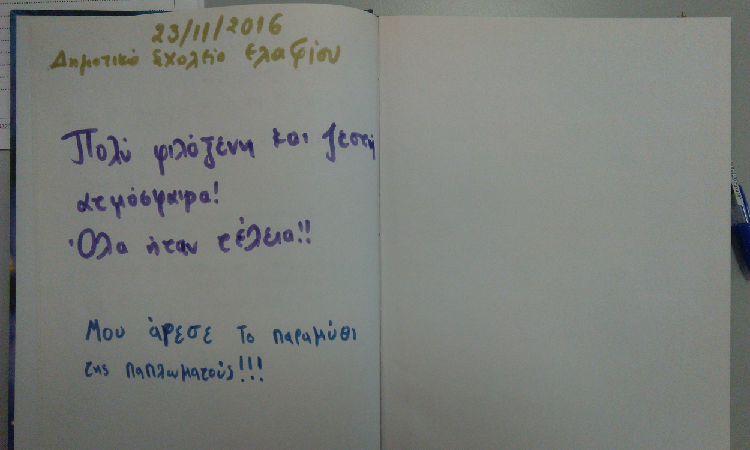 23/11/2016
Δημοτικό Σχολείο Ελαφίου
Πολύ φιλόξενη και ζεστή
ατμόσφαιρα!
Όλα ήταν τέλεια!!
Μου άρεσε το παραμύθι
της παπλωματούς!!!